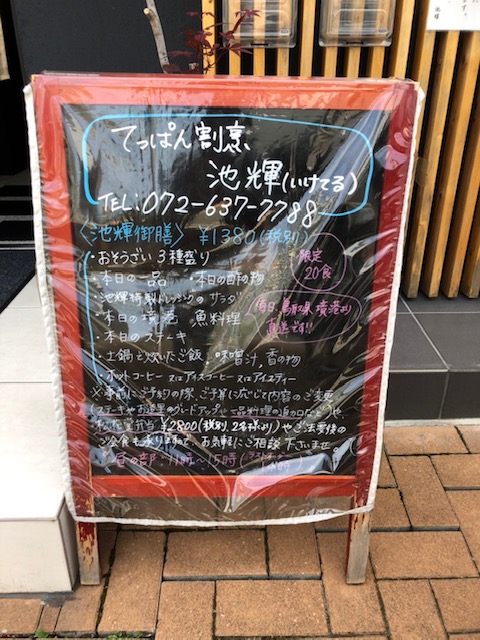 てっぱん割烹
池輝(いけてる)
TEL:072-637-7788
〈池輝御膳〉 ¥1380(税別)
限定
20食
・おそうざい3種盛り
・本日の一品 ・本日の酢の物
・池輝特製ドレッシングのサラダ
毎日、鳥取県 境港より
直送です!!
・本日の境港 魚料理
・本日のステーキ
・土鍋で炊いたご飯、味噌汁、香の物
・ホットコーヒー 又は アイスコーヒー 又は アイスティー
※事前にご予約の際、ご予算に応じて内容のご変更
(ステーキやお造里のグレードアップや一品料理の追加など)や、
松花堂弁当 ¥2800(税別、2名様より)やご法要後の
ご会食も承りますので、お気軽にご相談下さいませ。
昼の部:11時〜15時(ラストオーダー